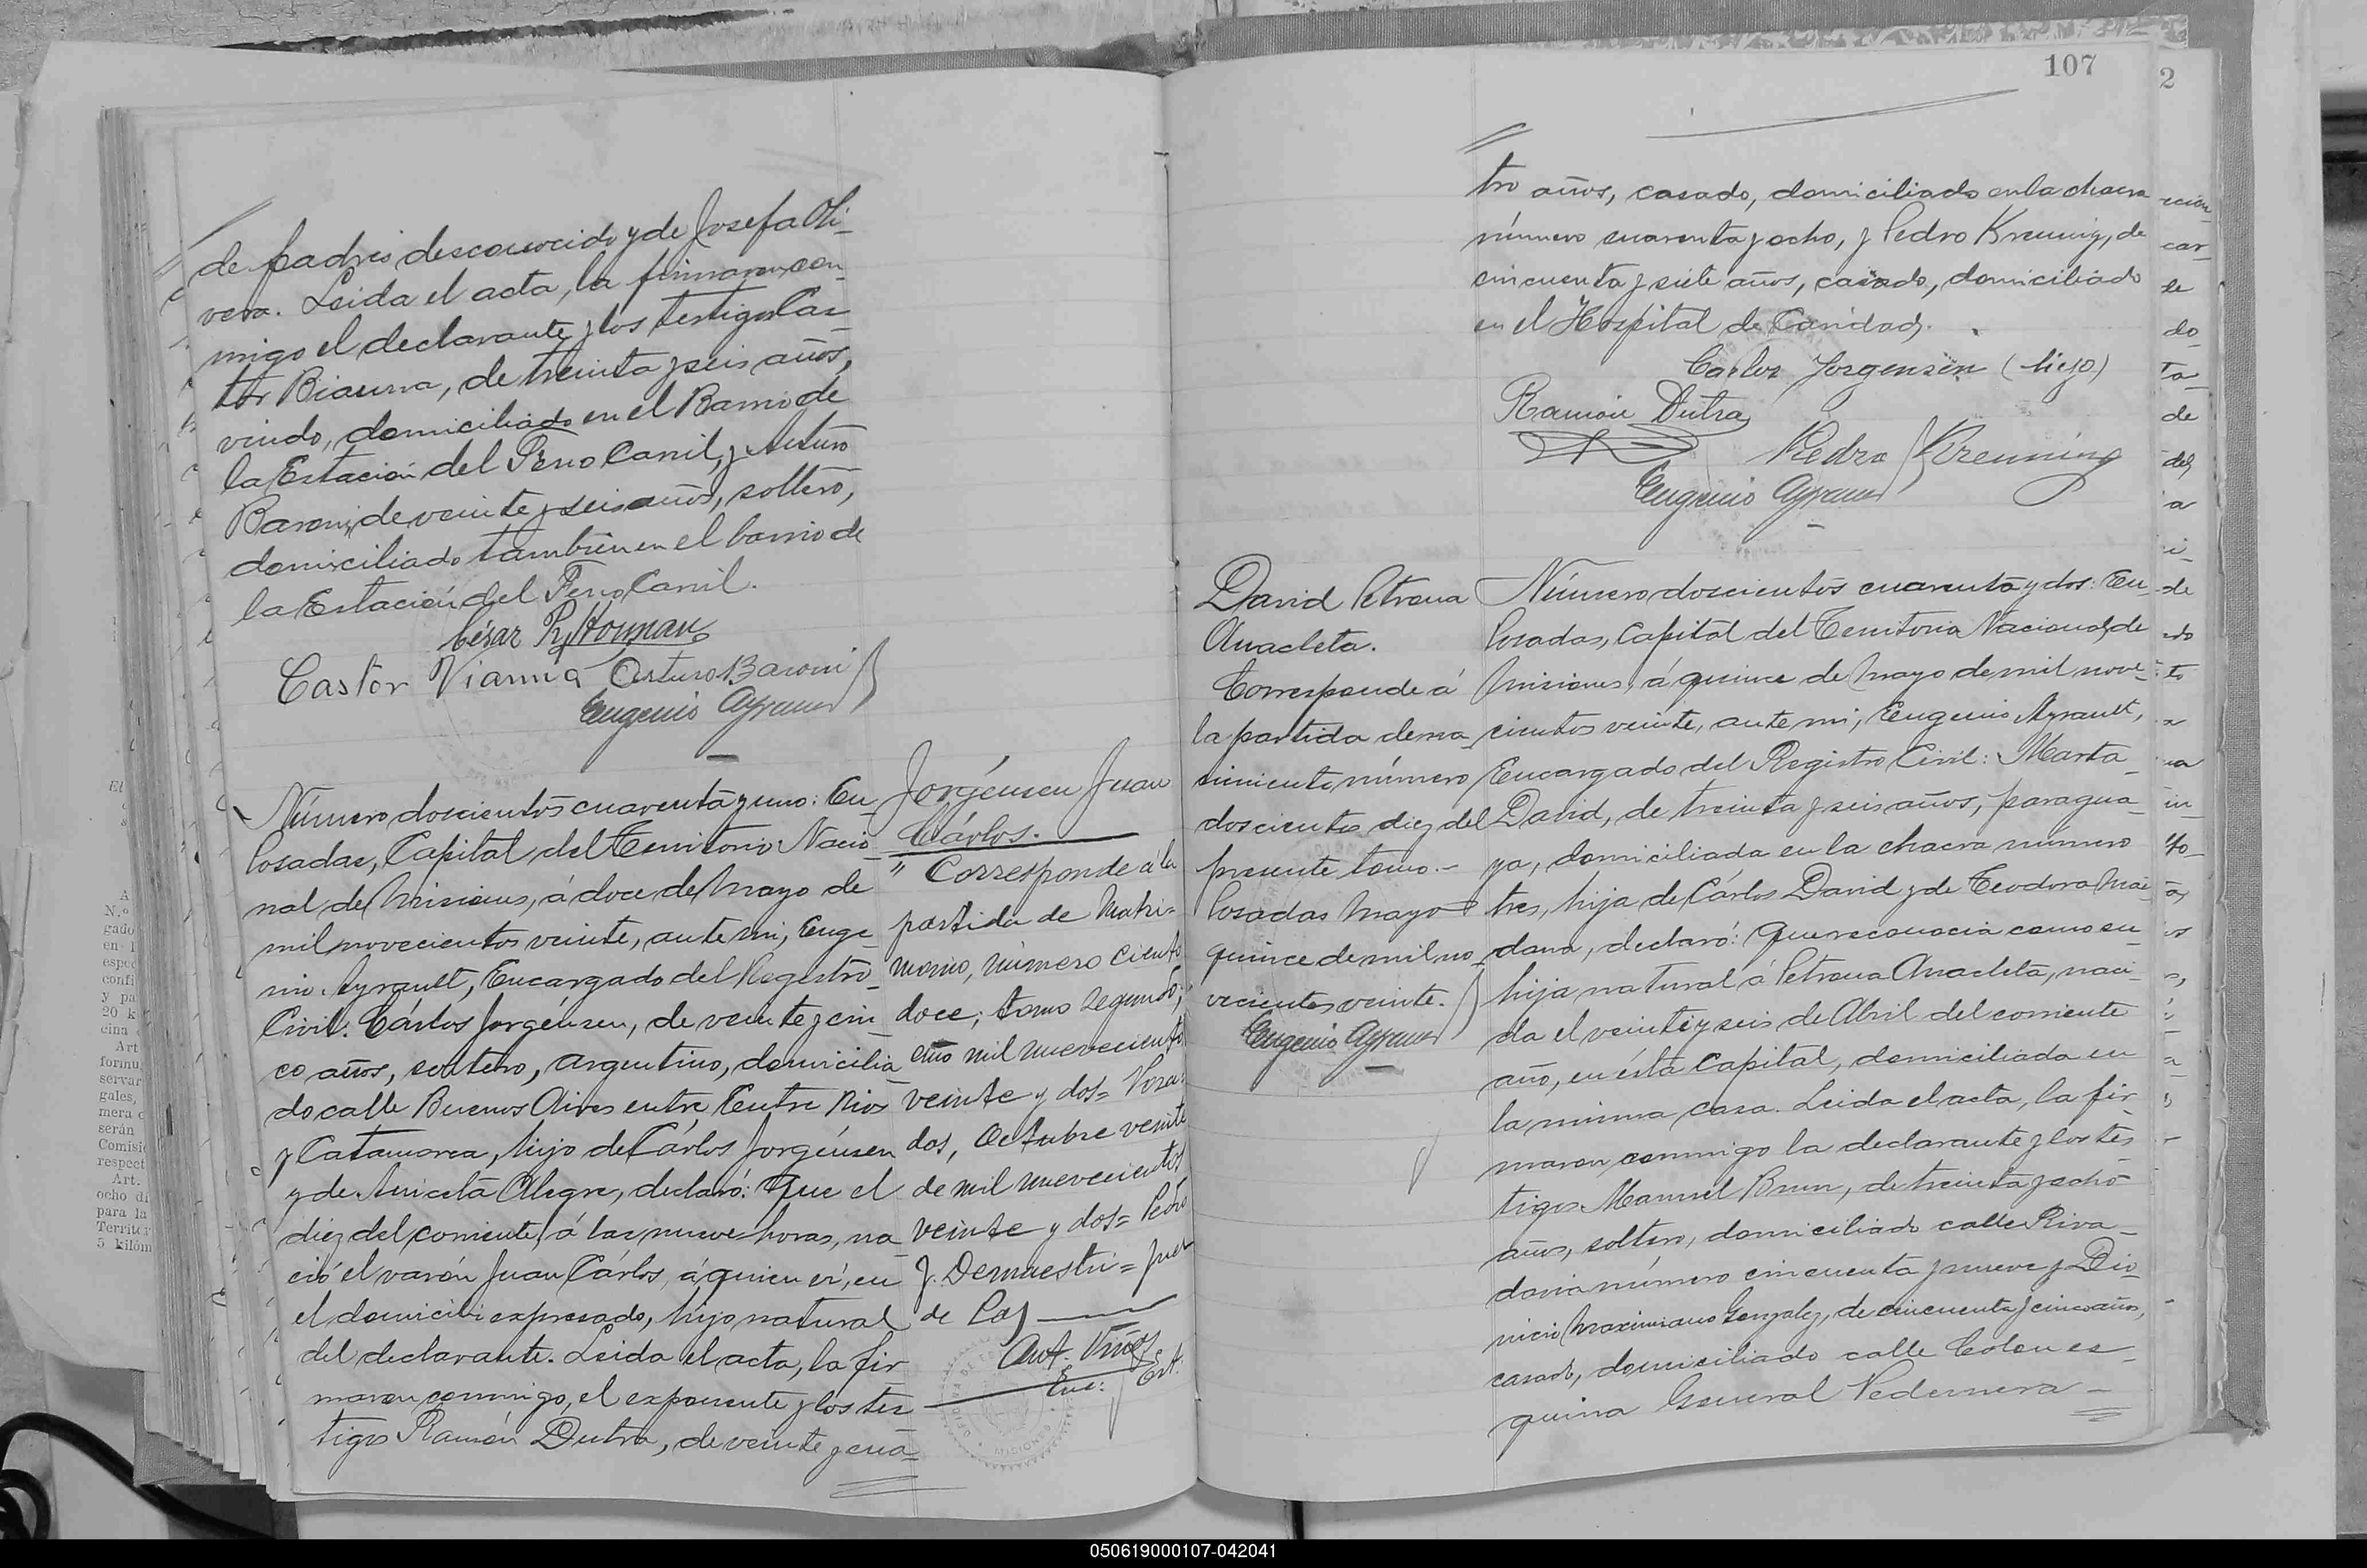 de padres desconocido y de Josefa Oli-
vera. Leida el acta, la firmaron con-
migo el declarante y los testigos Cas-
tor Biauna, de treinta y seis años,
viudo, domiciliado en el Barrio de
la Estación del Ferro Carril, y Arturo
Baroni, de veinte y seis años, soltero,
domiciliado tambien en el barrio de
la Estación del Ferro Carril.
César
Castor Vianna Arturo Baroni
Eugenio Ayrault
Número doscientos cuarenta y uno: En
Posadas, Capital del Territorio Nacio-
nal de Misiones, á doce de Mayo de
mil novecientos veinte, ante mi, Euge-
nio Ayrault, Encargado del Registro
Civil: Cárlos Jorgénsen, de veinte y cin-
co años, soltero, argentino, domicilia-
do calle Buenos Aires entre Entre Rios
y Catamarca, hijo de Cárlos Jorgénsen
y de Aniceta Alegre, declaró: Que el
diez del corriente, á las nueve horas, na-
ció el varón Juan Cárlos, á quien ví, en
el domicilio expresado, hijo natural
del declarante. Leida el acta, la fir-
maron conmigo, el exponente y los tes-
tigos Ramón Dutra, de veinte y cua-
Jorgénsen Juan
Cárlos.
" Corresponde á la
partida de Matri-
monio, número ciento
doce, tomo segundo,
año mil nuevecientos
veinte y dos = Posa-
das, Octubre veinte
de mil nuevecientos
veinte y dos = Pedro
J. Demaestri = Juez
de Paz
Ant. Viñas
Enc: Est.
107
2
tro años, casado, domiciliado en la chacra
número cuarenta y ocho, y Pedro Kreuning, de
cincuenta y siete años, casado, domiciliado
en el Hospital de Caridad.
Carlos Jorgensen (hijo)
Ramón Dutra
Pedro Kreuning
Eugenio Ayrault
David Petrona
Anacleta.
Corresponde á
la partida de na-
cimiento número
doscientos diez del
presente tomo.-
Posadas Mayo
quince de mil no-
vecientos veinte.
Eugenio Ayrault
Número doscientos cuarenta y dos: En
Posadas, Capital del Territorio Nacional de
Misiones, á quince de Mayo de mil nove-
cientos veinte, ante mi, Eugenio Ayrault,
Encargado del Registro Civil: Marta
David, de treinta y seis años, paragua-
ya, domiciliada en la chacra número
tres, hija de Cárlos David y de Teodora Mai-
dana, declaró: Que reconocia como su
hija natural á Petrona Anacleta, naci-
da el veinte y seis de Abril del corriente
año, en ésta Capital, domiciliada en
la misma casa. Leida el acta, la fir-
maron conmigo la declarante y los tes-
tigos Manuel Brun, de treinta y ocho
años, soltero, domiciliado calle Riva-
davia número cincuenta y nueve y Dio-
nicio Maximiano Gonzalez, de cincuenta y cinco años,
casado, domiciliado calle Colon es-
quina General Pedernera -
050619000107-042041